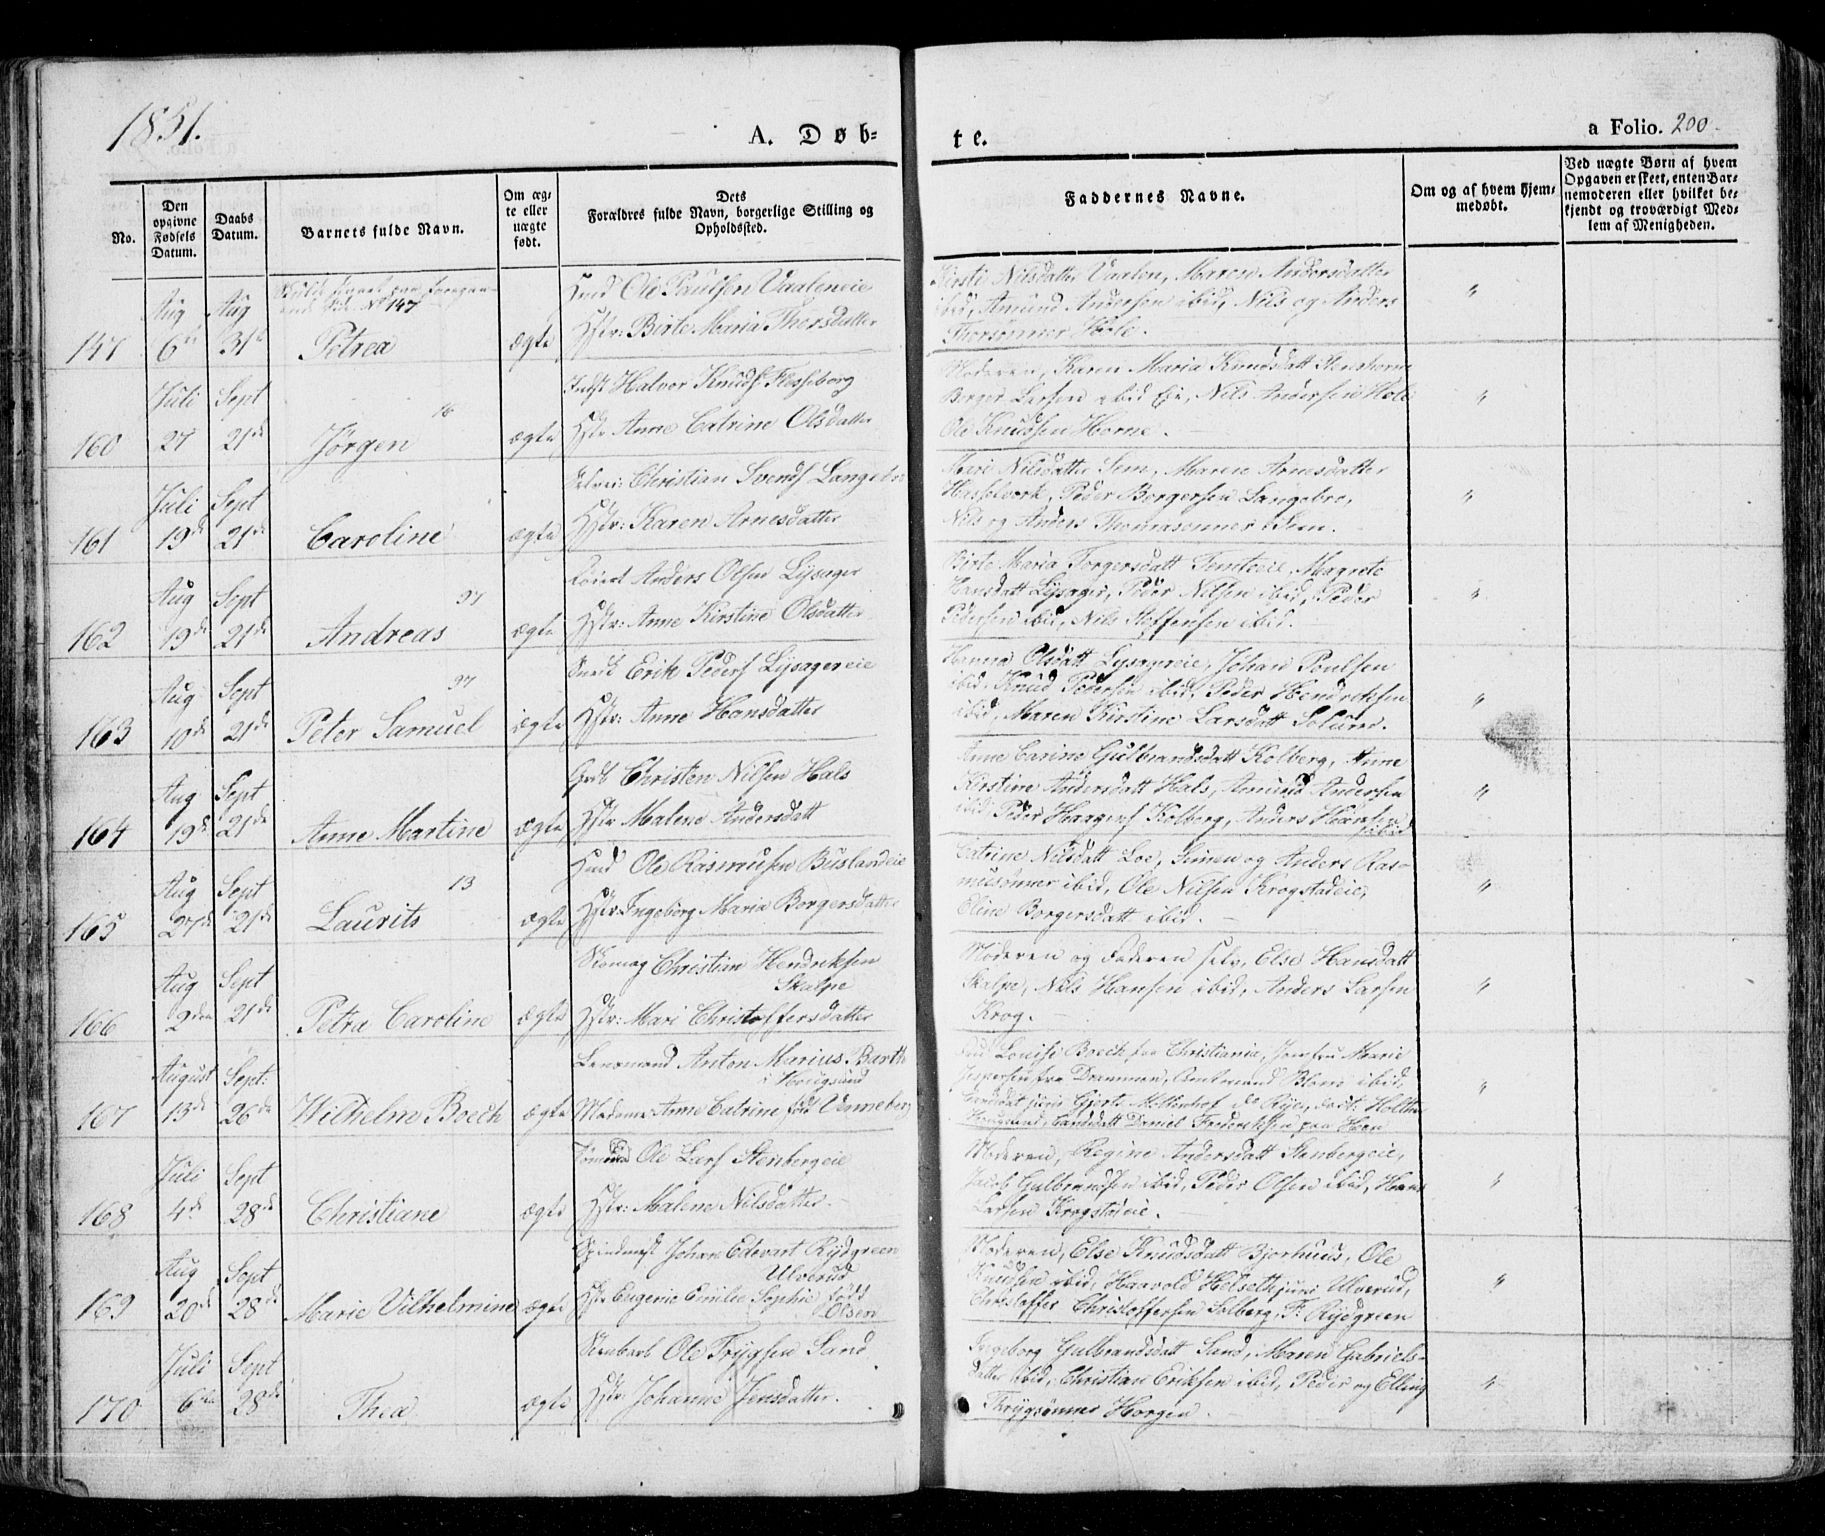 1851.
A. Døb-
te.
a Folio. 200
No.
Den opgivne Fødsels Datum.
Daabs Datum.
Barnets fulde Navn.
Om ægte eller uægte født.
Dets Forældres fulde Navn, borgerlige Stilling og Opholdssted.
Faddernes Navne.
Om og af hvem hjemmedøbt.
Ved uægte Børn af hvem Opgaven er skeet, enten Barnemoderen eller hvilket bekjendt og troværdigt Medlem af Menigheden.
No 147
147 Aug 6te Aug 31te Petrea ægte
Huusmd Ole Paulsen Vaaleneie
Hstr: Birte Maria Thorsdatter
Kirsti Nilsdatter Vaalen, Maren Andersdatter
ibid, Amund Andersen ibid, Nils og Anders
Thorsønner Hole. "
160 Juli 27 Sept 21de Jørgen 16 ægte
Inds Halvor Knuds Flesseborg
Hstr Anne Catrine Olsdatter
Moderen, Karen Maria Knudsdatt Stenshorne
Borger Larsen ibid Eie, Nils Andersen Hole
Ole Knudsen Horne. "
161 Juli 19de Sept 21de Caroline ægte
Selvei: Christian Svends Langebro
Hstr: Karen Arnesdatter
Mari Nilsdatter Sem, Maren Arnesdatter
Hasselverk, Peder Borgersen Langebro,
Nils og Anders Thomasønner Sem. "
162 Aug 19de Sept 21de Andreas 97 ægte
Anders Olsen Lysager
Hstr: Anne Kirstine Olsdatter
Birte Maria Torgersdatt Temteeie, Magrete
Hansdatt Lysager, Peder Nilsen ibid, Peder
Pedersen ibid, Nils Steffensen ibid. "
163 Aug 10de Sept 21de Peter Samuel 97 ægte
Erik Peders Lysagereie
Hstr: Anne Hansdatter
Hanna Olsdatt Lysagreie, Johan Poulsen
ibid, Knud Pedersen ibid, Peder Hendriksen
ibid, Maren Kirstine Larsdatt Solum. "
164 Aug 19de Sept 21de Anne Martine ægte
Gdb Christen Nilsen Hals
Hstr Malene Andersdatt
Anne Carine Gulbrandsdatt Kolberg, Anne
Kirstine Andersdatt Hals, Amund Andersen
ibid, Peder Haagens Kolberg, Anders Hansen
ibid "
165 Aug 27de Sept 21de Laurits 13 ægte
Huusmd Ole Rasmusen Buslandeie
Hstr Ingeborg Maria Borgersdatter
Catrine Nilsdatt Loe, Simen og Anders Ras-
musønner ibid, Ole Nilsen Krogstadeie,
Oline Borgersdatt ibid. "
166 Aug 2den Sept 21de Petra Caroline ægte
Skomag Christian Hendriksen
Skalpe
Hstr: Mari Christoffersdatter
Moderen og Faderen selv, Else Hansdatt
Skalpe, Nils Hansen ibid, Anders Larsen
Krog. "
167 August 13de Sept: 26de Wilhelm Boeck ægte
Lensmand Anton Marius Barth
i Hougsund
Madame Anne Catrine født Venneberg
Fru Louise Boeck fra Christiania, Jomfru Marie
Jespersen fra Drammen, Amtmand Blom ibid,
Candidat juris Gjerte de Rye, Holter
Hougsund, Candidat Daniel Frederiksen paa Hoen "
168 Juli 4de Sept 28de Christiane ægte
Ole Lars Stenbergeie
Hstr: Malene Nilsdatter
Moderen, Regine Andersdatt Stenbergeie,
Jacob Gulbrandsen ibid, Peder Olsen ibid, Hans
Larsen Krogstadeie. "
169 Aug 20de Sept 28de Marie Vilhelmine ægte
Spindmest Johan Edevart Rydgreen
Ulverud
Hstr Eugenie Emilee Sophie født
Olsen
Moderen, Else Knudsdatt Bjørhuus, Ole
Knudsen ibid, Haavold Helseth juni Ulverud,
Christoffer Christoffersen Solberg, F: Rydgreen "
170 Juli 6te Sept 28de Thea ægte
Ole Trygsen Sand
Hstr: Johanne Jensdatter.
Ingeborg Gulbrandsdatt Sand, Maren Gabriels-
datter ibid, Christian Eriksen ibid, Peder og Elling
Thrygsønner Horgen. "